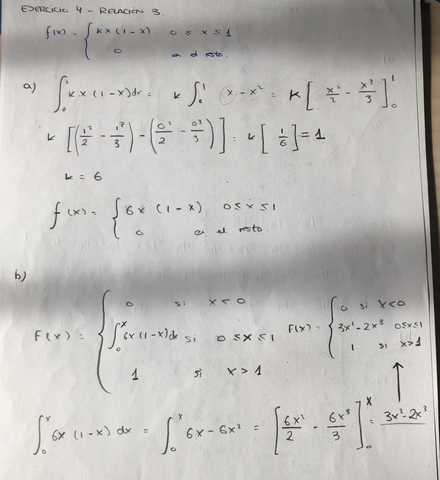 EJERCICIO 4 - RELACIÓN 3.
f(x) = { kx (1-x) 0 ≤ x ≤ 1
0 en el resto.
a) ∫₀¹ kx (1-x)dx = k ∫₀¹ x - x² = k [ x²/2 - x³/3 ]₀¹
k [ (1²/2 - 1³/3) - (0²/2 - 0³/3) ] = k [ 1/6 ] = 1
k = 6
f(x) = { 6x (1-x) 0 ≤ x ≤ 1
0 en el resto.
b)
F(x) = { 0 si x < 0
∫₀ˣ 6x (1-x) dx si 0 ≤ x ≤ 1
1 si x > 1
F(x) = { 0 si x < 0
3x² - 2x³ 0 ≤ x ≤ 1
1 si x > 1
∫₀ˣ 6x (1-x) dx = ∫₀ˣ 6x - 6x² = [ 6x²/2 - 6x³/3 ]₀ˣ = 3x² - 2x³